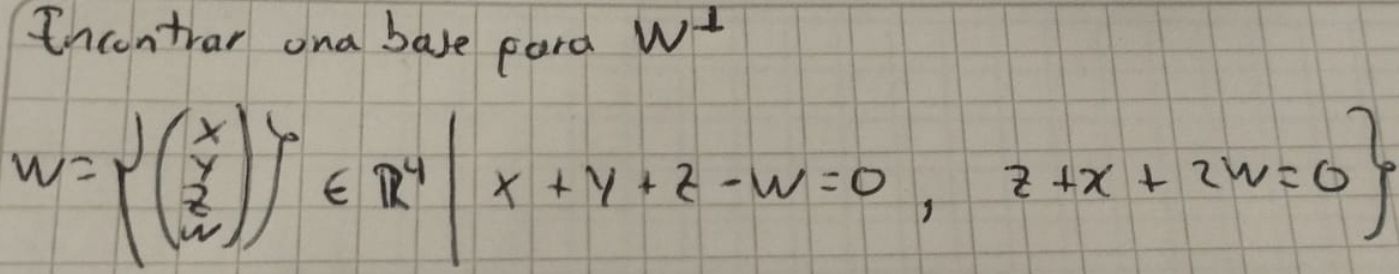 Encontrar una base para W⊥
W = { (x y z w) } ∈ ℝ⁴ | x + y + z - w = 0 , z + x + 2w = 0 }